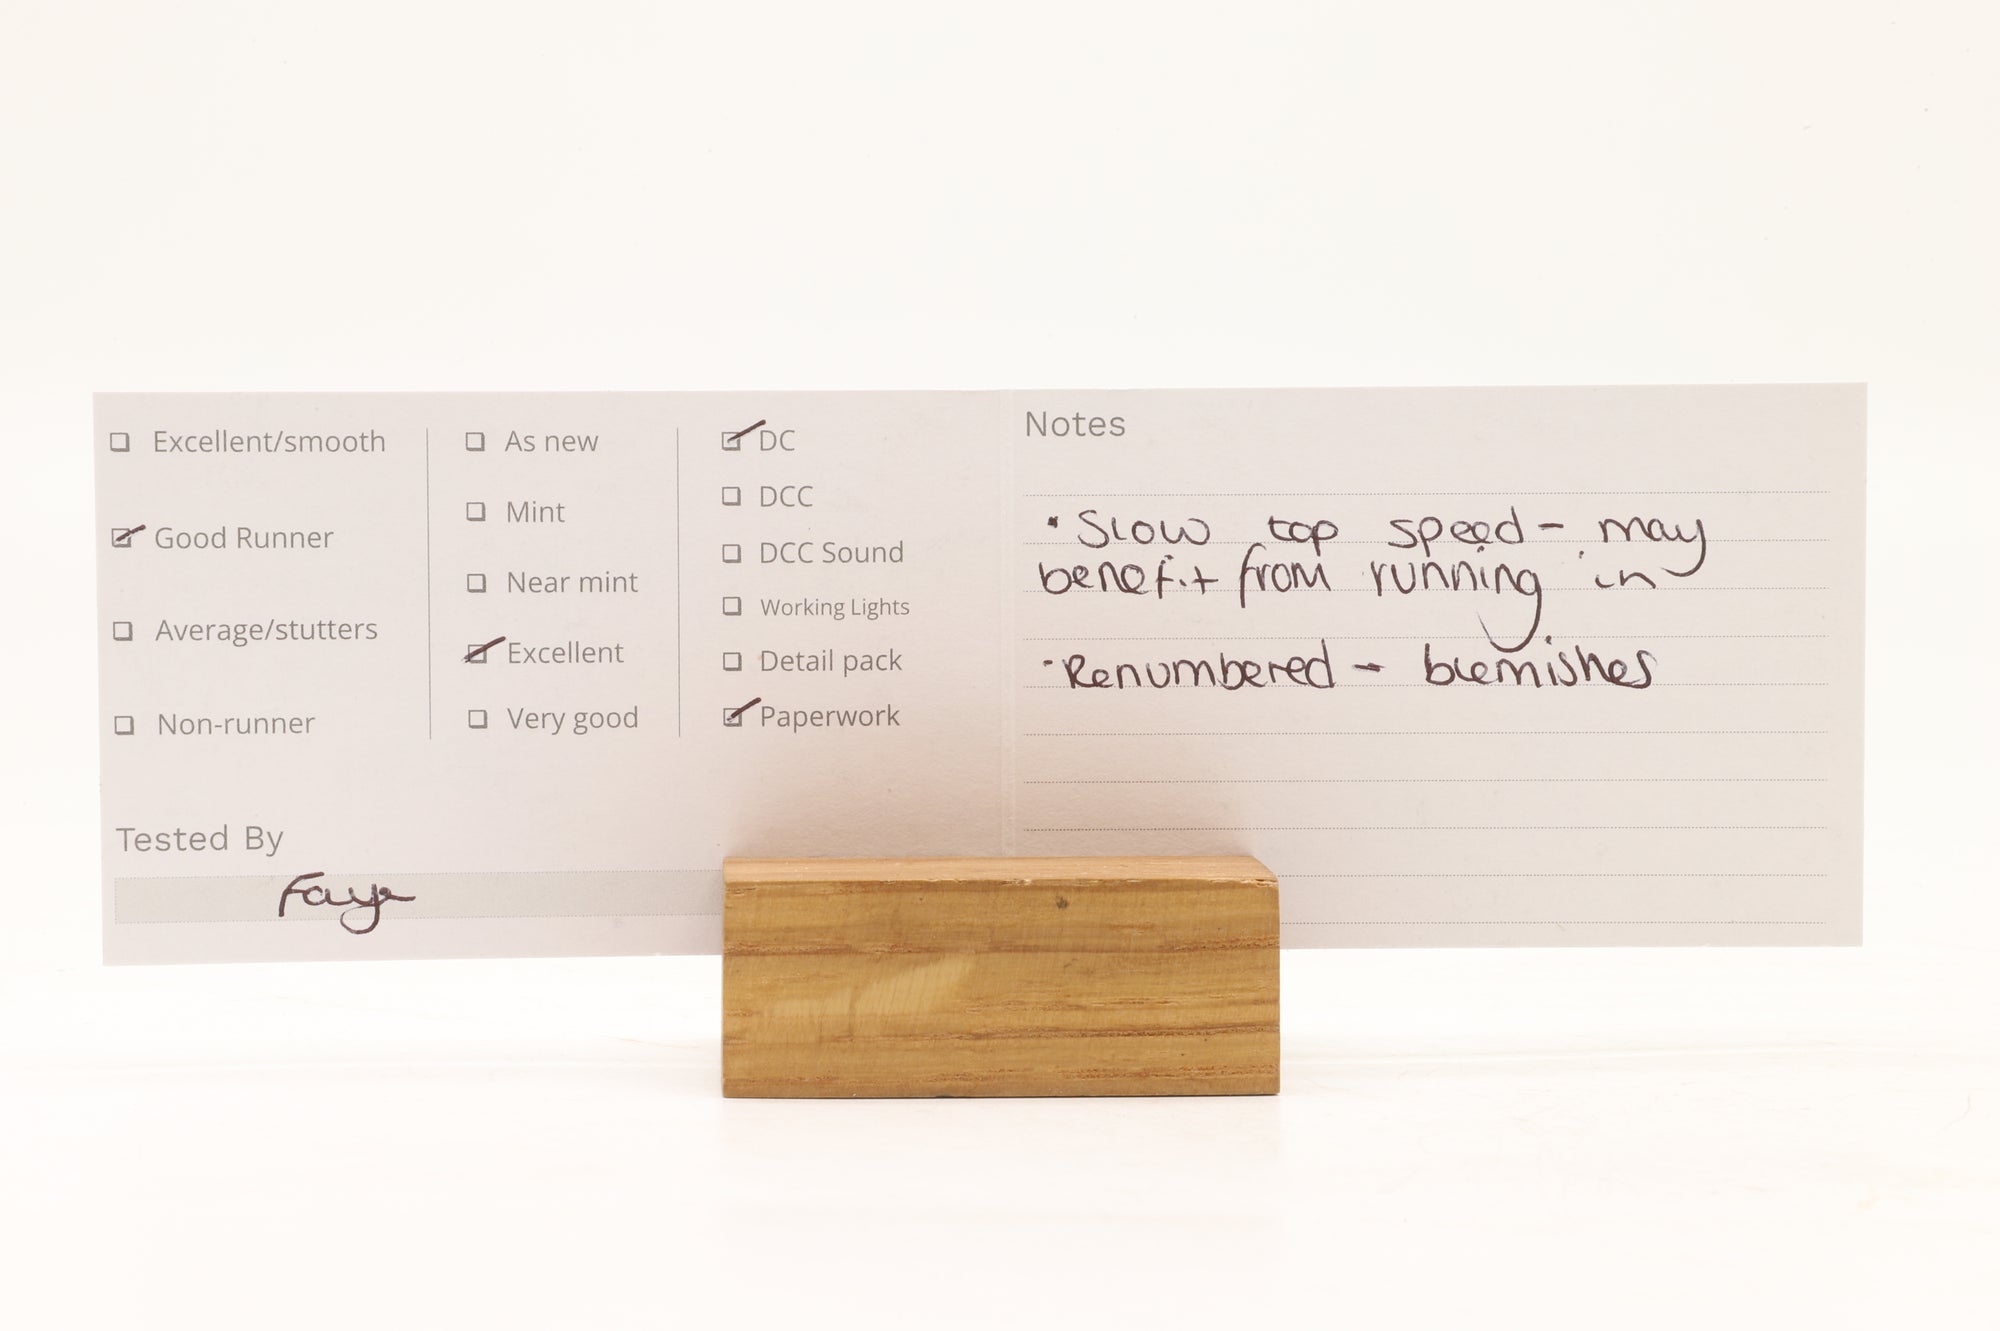 ☐ Excellent/smooth
☑ Good Runner
☐ Average/stutters
☐ Non-runner
☐ As new
☐ Mint
☐ Near mint
☑ Excellent
☐ Very good
☑ DC
☐ DCC
☐ DCC Sound
☐ Working Lights
☐ Detail pack
☑ Paperwork
Tested By
Faye
Notes
• Slow top speed - may
benefit from running in
- Renumbered - blemishes